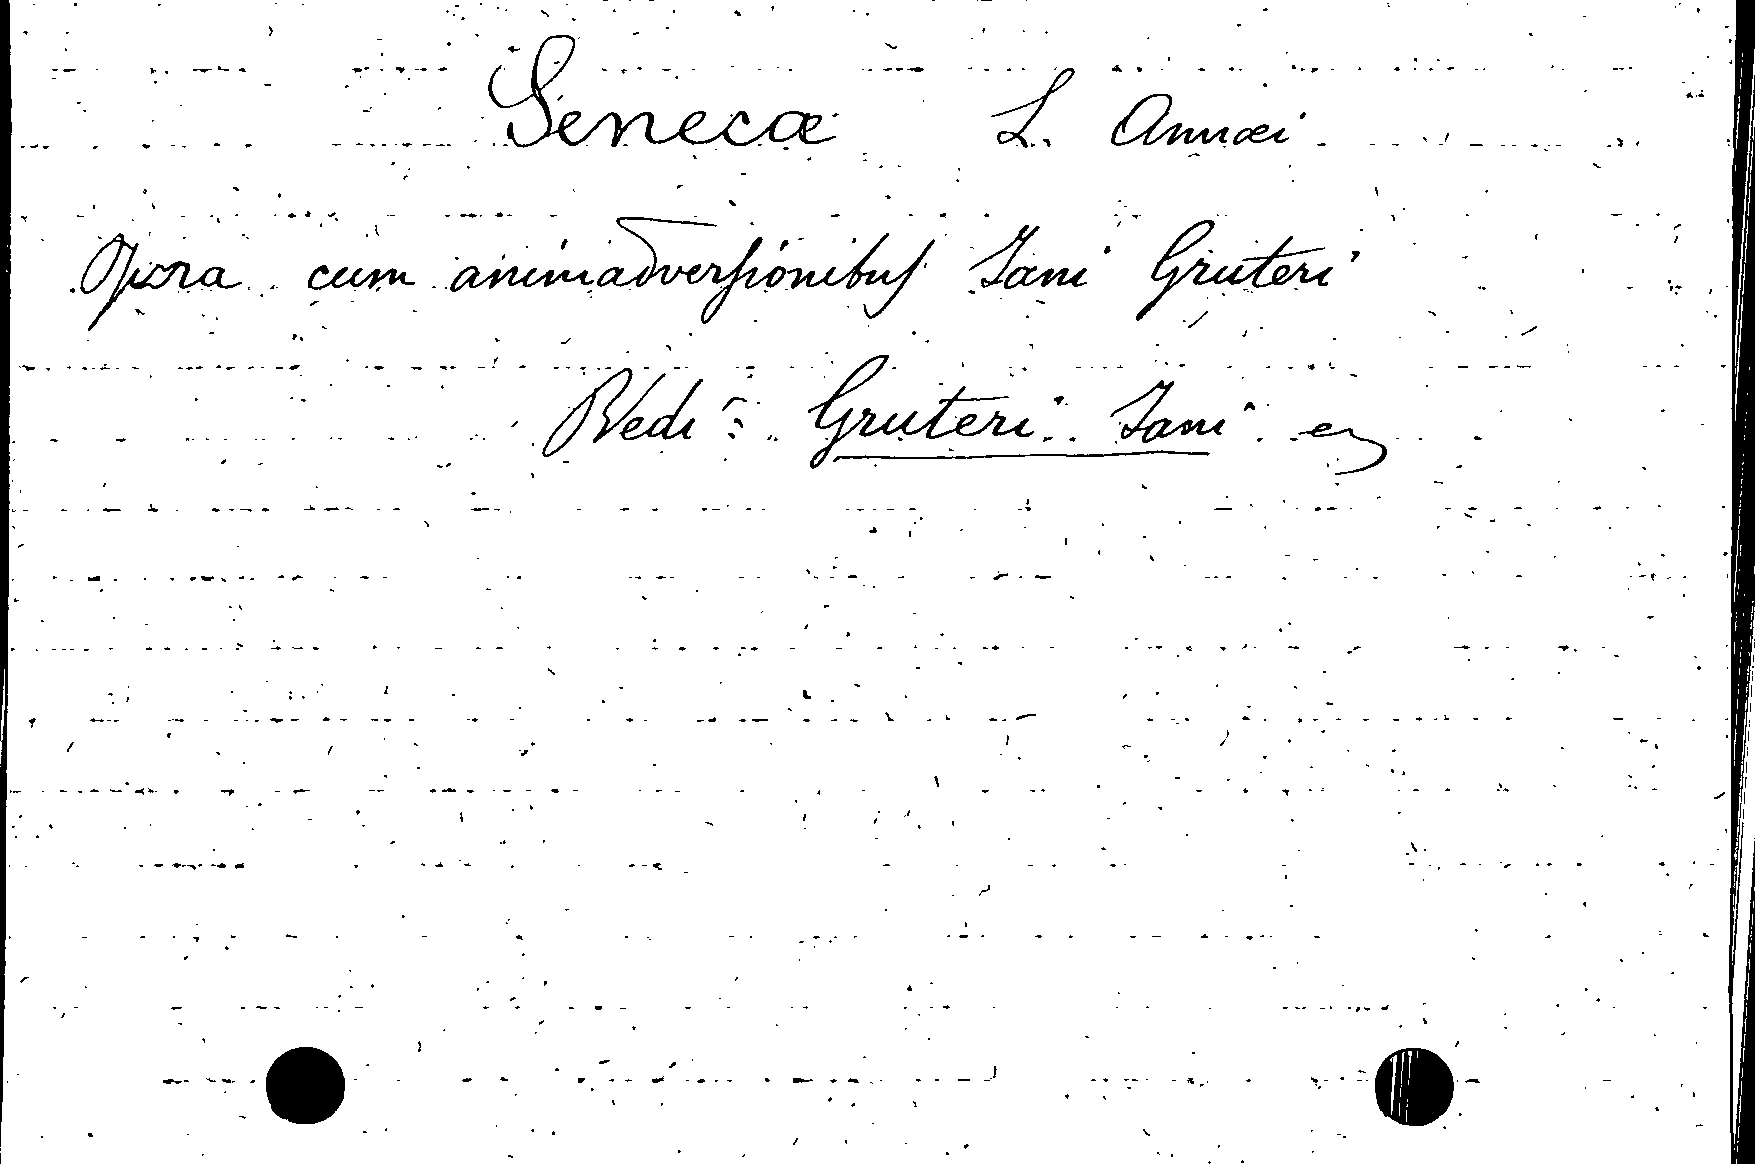 Senecæ L. Annæi
Opera cum animadversionibus Jani Gruteri
Vedi: Gruteri Jani